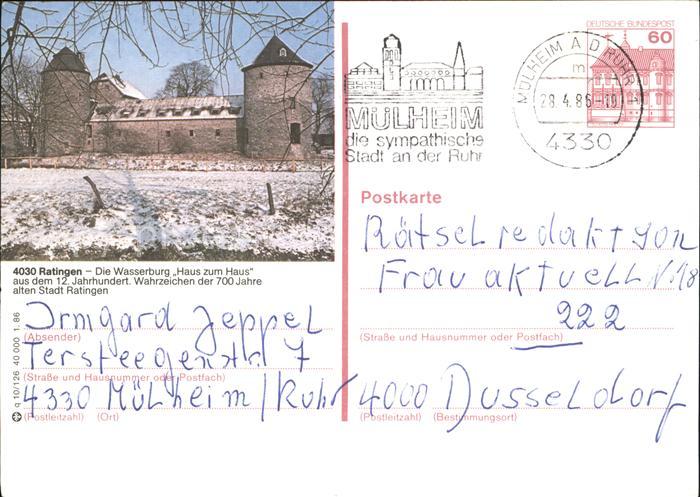 DEUTSCHE BUNDESPOST
60
MÜLHEIM A D RUHR 1
m
28.4.86-19
4330
MÜLHEIM
die sympathische
Stadt an der Ruhr
Postkarte
4030 Ratingen – Die Wasserburg „Haus zum Haus"
aus dem 12. Jahrhundert. Wahrzeichen der 700 Jahre
alten Stadt Ratingen
q 10/126 40 000 1. 86
Irmgard Jeppel
(Absender)
Tersteegenstr 7
(Straße und Hausnummer oder Postfach)
4330 Mülheim/Ruhr
(Postleitzahl) (Ort)
Rätselredaktyon
Frau aktuell N. 18
222
(Straße und Hausnummer oder Postfach)
4000 Dusseldorf
(Postleitzahl) (Bestimmungsort)